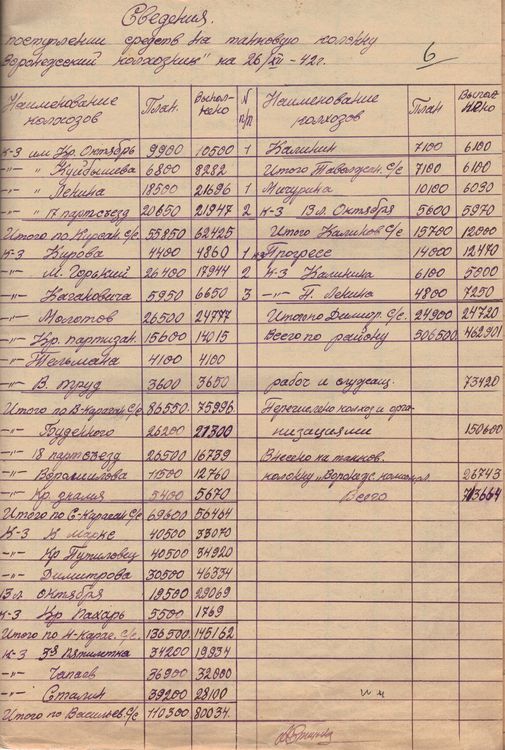 Сведения.
поступлении средств на танковую колонну
"Воронежский колхозник" на 26/XII-42г.
6
Наименование колхозов План. Выпол-нено N п/п Наименование колхозов План Выполнено
к-з им Кр. Октябрь 9900 10500 1 Калинин 7100 6100
-"- " Куйбышева 6800 8282 Итого Таволжан. С/с 7100 6100
-"- " Ленина 18500 21696 1 Мичурина 10100 6030
-"- " 17 партсъезд 20650 21947 2 к-з 13 л. Октября 5600 5970
Итого по Курган. С/с 55850 62425 Итого Калинов С/с 15700 12000
к-з Кирова 4400 4860 1 Прогресс 14000 12470
-"- М. Горький 26400 17944 2 к-з Калинина 6100 5000
-"- Кагановича 5950 6650 3 -"- П. Ленина 4800 7250
-"- Молотов 26500 24777 Итого по Димитр. С/с. 24900 24720
-"- Кр. партизан. 15600 14015 Всего по району 506500 462901
-"- Тельмана 4100 4100
-"- В. труд 3600 3650 рабоч и служащ. 73420
Итого по В-Карачан. С/с 86550 75996 Перечислено колхоз и орга-
-"- Буденного 26200 21300 низациями 150600
-"- 18 партсъезд 26500 16739 Внесено на танков.
-"- Ворошилова 11500 12760 колонну "Воронежс. комсомол 26743
-"- Кр. знамя 5400 5670 Всего 713664
Итого по С-Карачан С/с 69600 56464
к-з К Маркс 40500 33070
-"- Кр Путиловец 40500 34920
-"- Димитрова 30500 46334
13 л октября 19500 29069
к-з Кр Пахарь 5500 1769
Итого по Н-Караче. С/с. 136500 145162
к-з 3я Пятилетка 34200 19934
-"- Чапаев 36900 32000
-"- Сталин 39200 28100
Итого по Васильев. С/с 110300 80034.